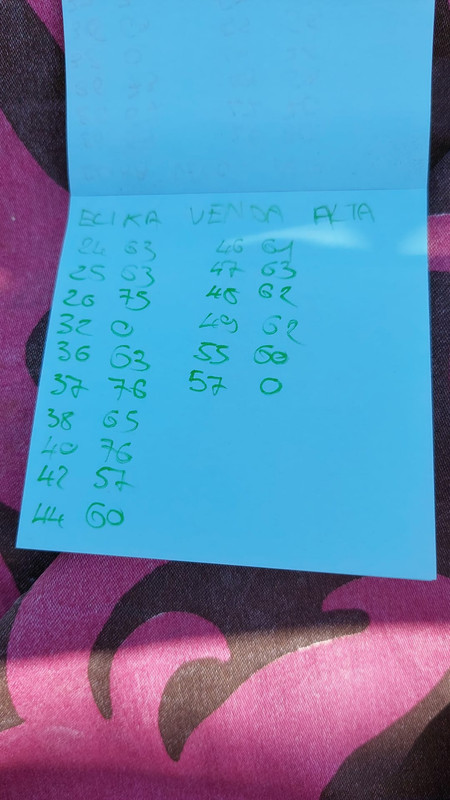 ELIKA VENDA ALTA
24 63 46 61
25 63 47 63
26 75 48 62
32 0 49 62
36 63 55 60
37 76 57 0
38 65
40 76
42 57
44 60